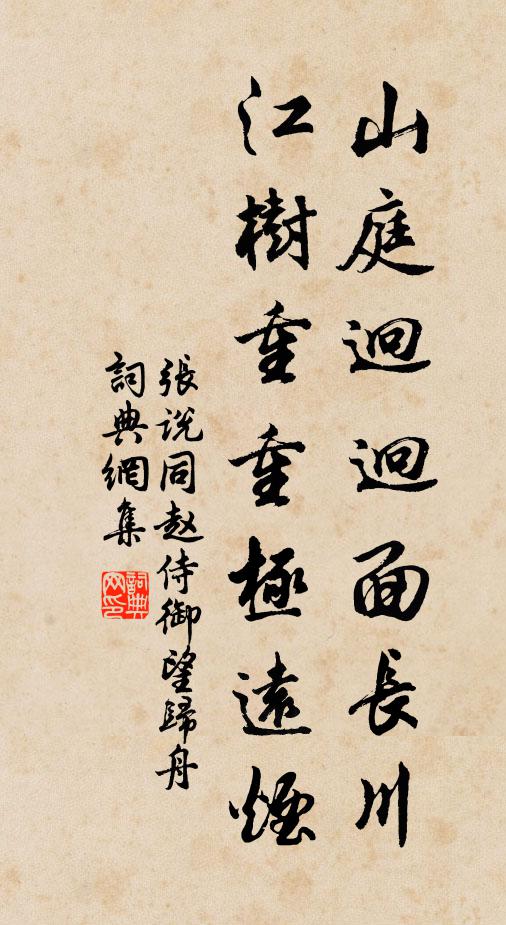 山庭迥迥面長川
江樹重重極遠煙
張说同赵侍御望歸舟
詞典網集
詞典网印